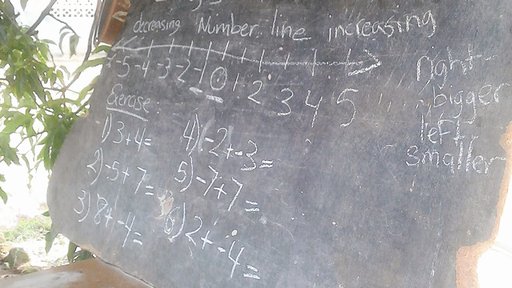 decreasing Number line increasing
-5 -4 -3 -2 -1 0 1 2 3 4 5
right-
bigger
left-
smaller
Exercise:
1) 3+4=
2) -5+7=
3) 8+-4=
4) -2+-3=
5) -7+7=
6) 2+-4=